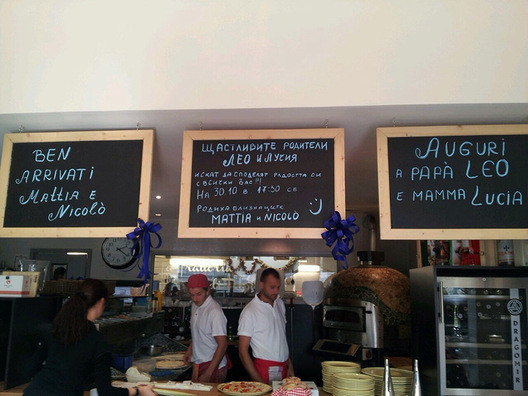 BEN
ARRIVATI
MATTIA E
NICOLÒ
ЩАСТЛИВИТЕ РОДИТЕЛИ
ЛЕО И ЛУЧИЯ
ИСКАТ ДА СПОДЕЛЯТ РАДОСТТА СИ
С ВСИЧКИ ВАС!!!
НА 30.10 В 17:50 СЕ
РОДИХА БЛИЗНАЦИТЕ
MATTIA И NICOLÒ
AUGURI
A PAPÀ LEO
E MAMMA LUCIA
DRAGONE